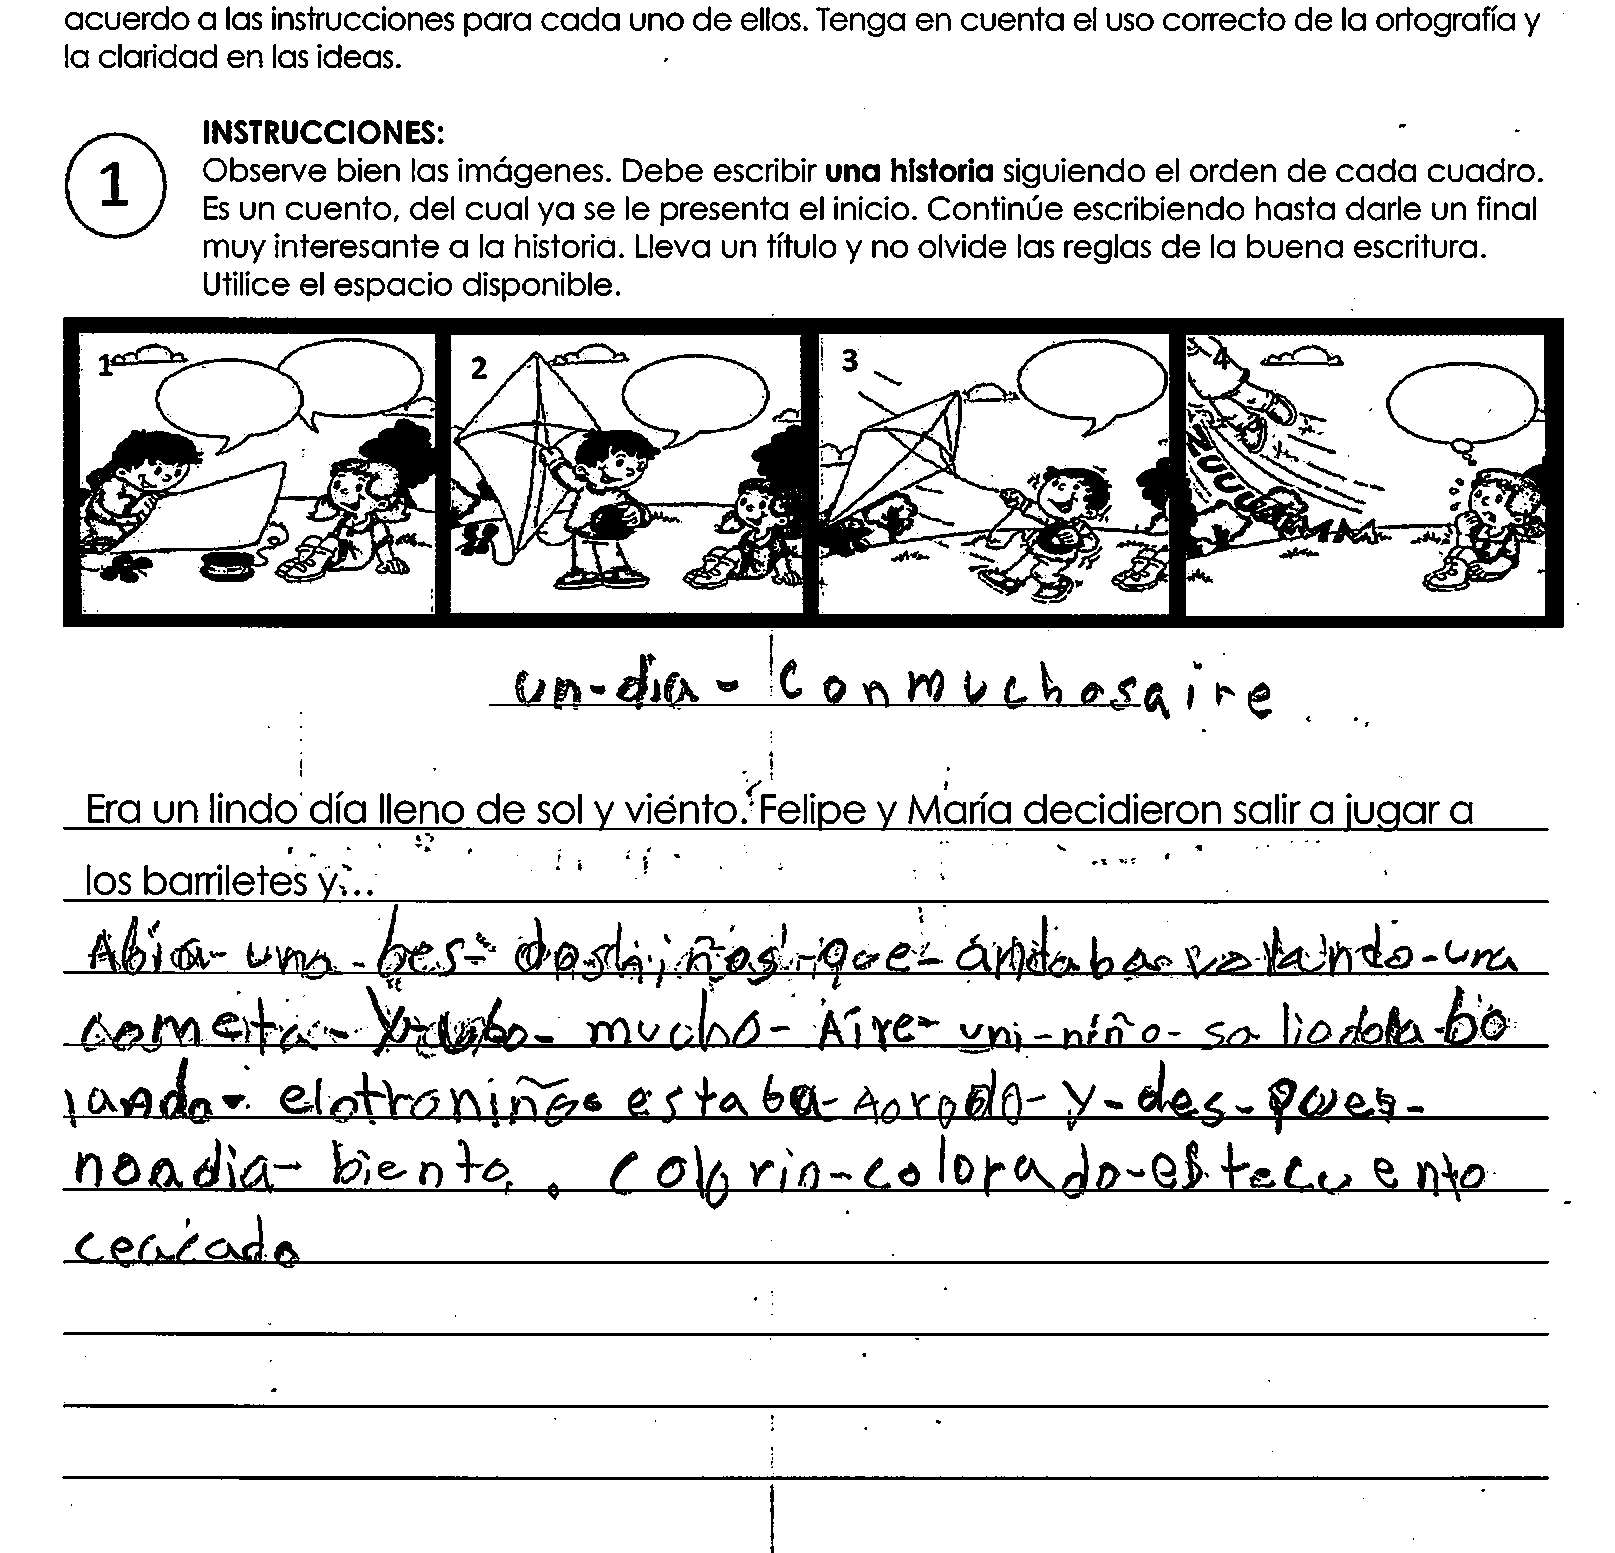 acuerdo a las instrucciones para cada uno de ellos. Tenga en cuenta el uso correcto de la ortografía y
la claridad en las ideas.
1
INSTRUCCIONES:
Observe bien las imágenes. Debe escribir una historia siguiendo el orden de cada cuadro.
Es un cuento, del cual ya se le presenta el inicio. Continúe escribiendo hasta darle un final
muy interesante a la historia. Lleva un título y no olvide las reglas de la buena escritura.
Utilice el espacio disponible.
1 2 3 4
un-dia- Conmuchosaire
Era un lindo día lleno de sol y viento. Felipe y María decidieron salir a jugar a
los barriletes y...
Abia- una-bes- dos que- andaba volando-una
cometa- mucho- Aire- uni-niño- salio bo
lando- elotroniño estaba- y-des-pues-
noadia- biento. Colorin-colorado-estecuento